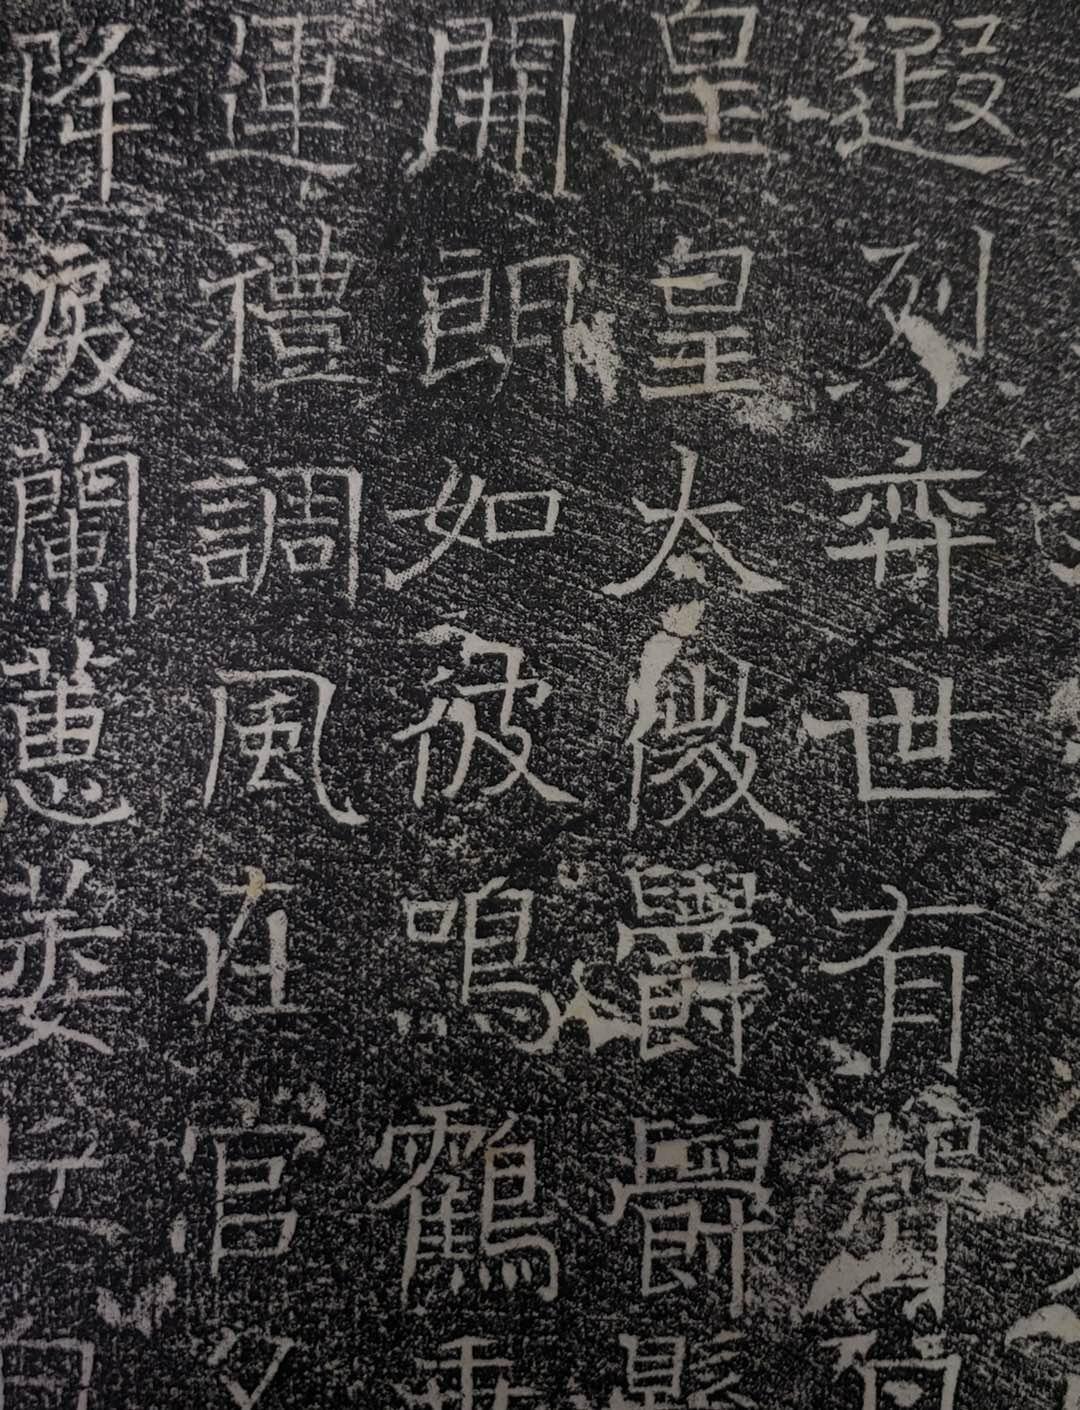 遐烈弈世有聲
皇皇太微爵爵縣
開朗如彼鳴鶴垂
運禮調風在官
降蘭蕙萎